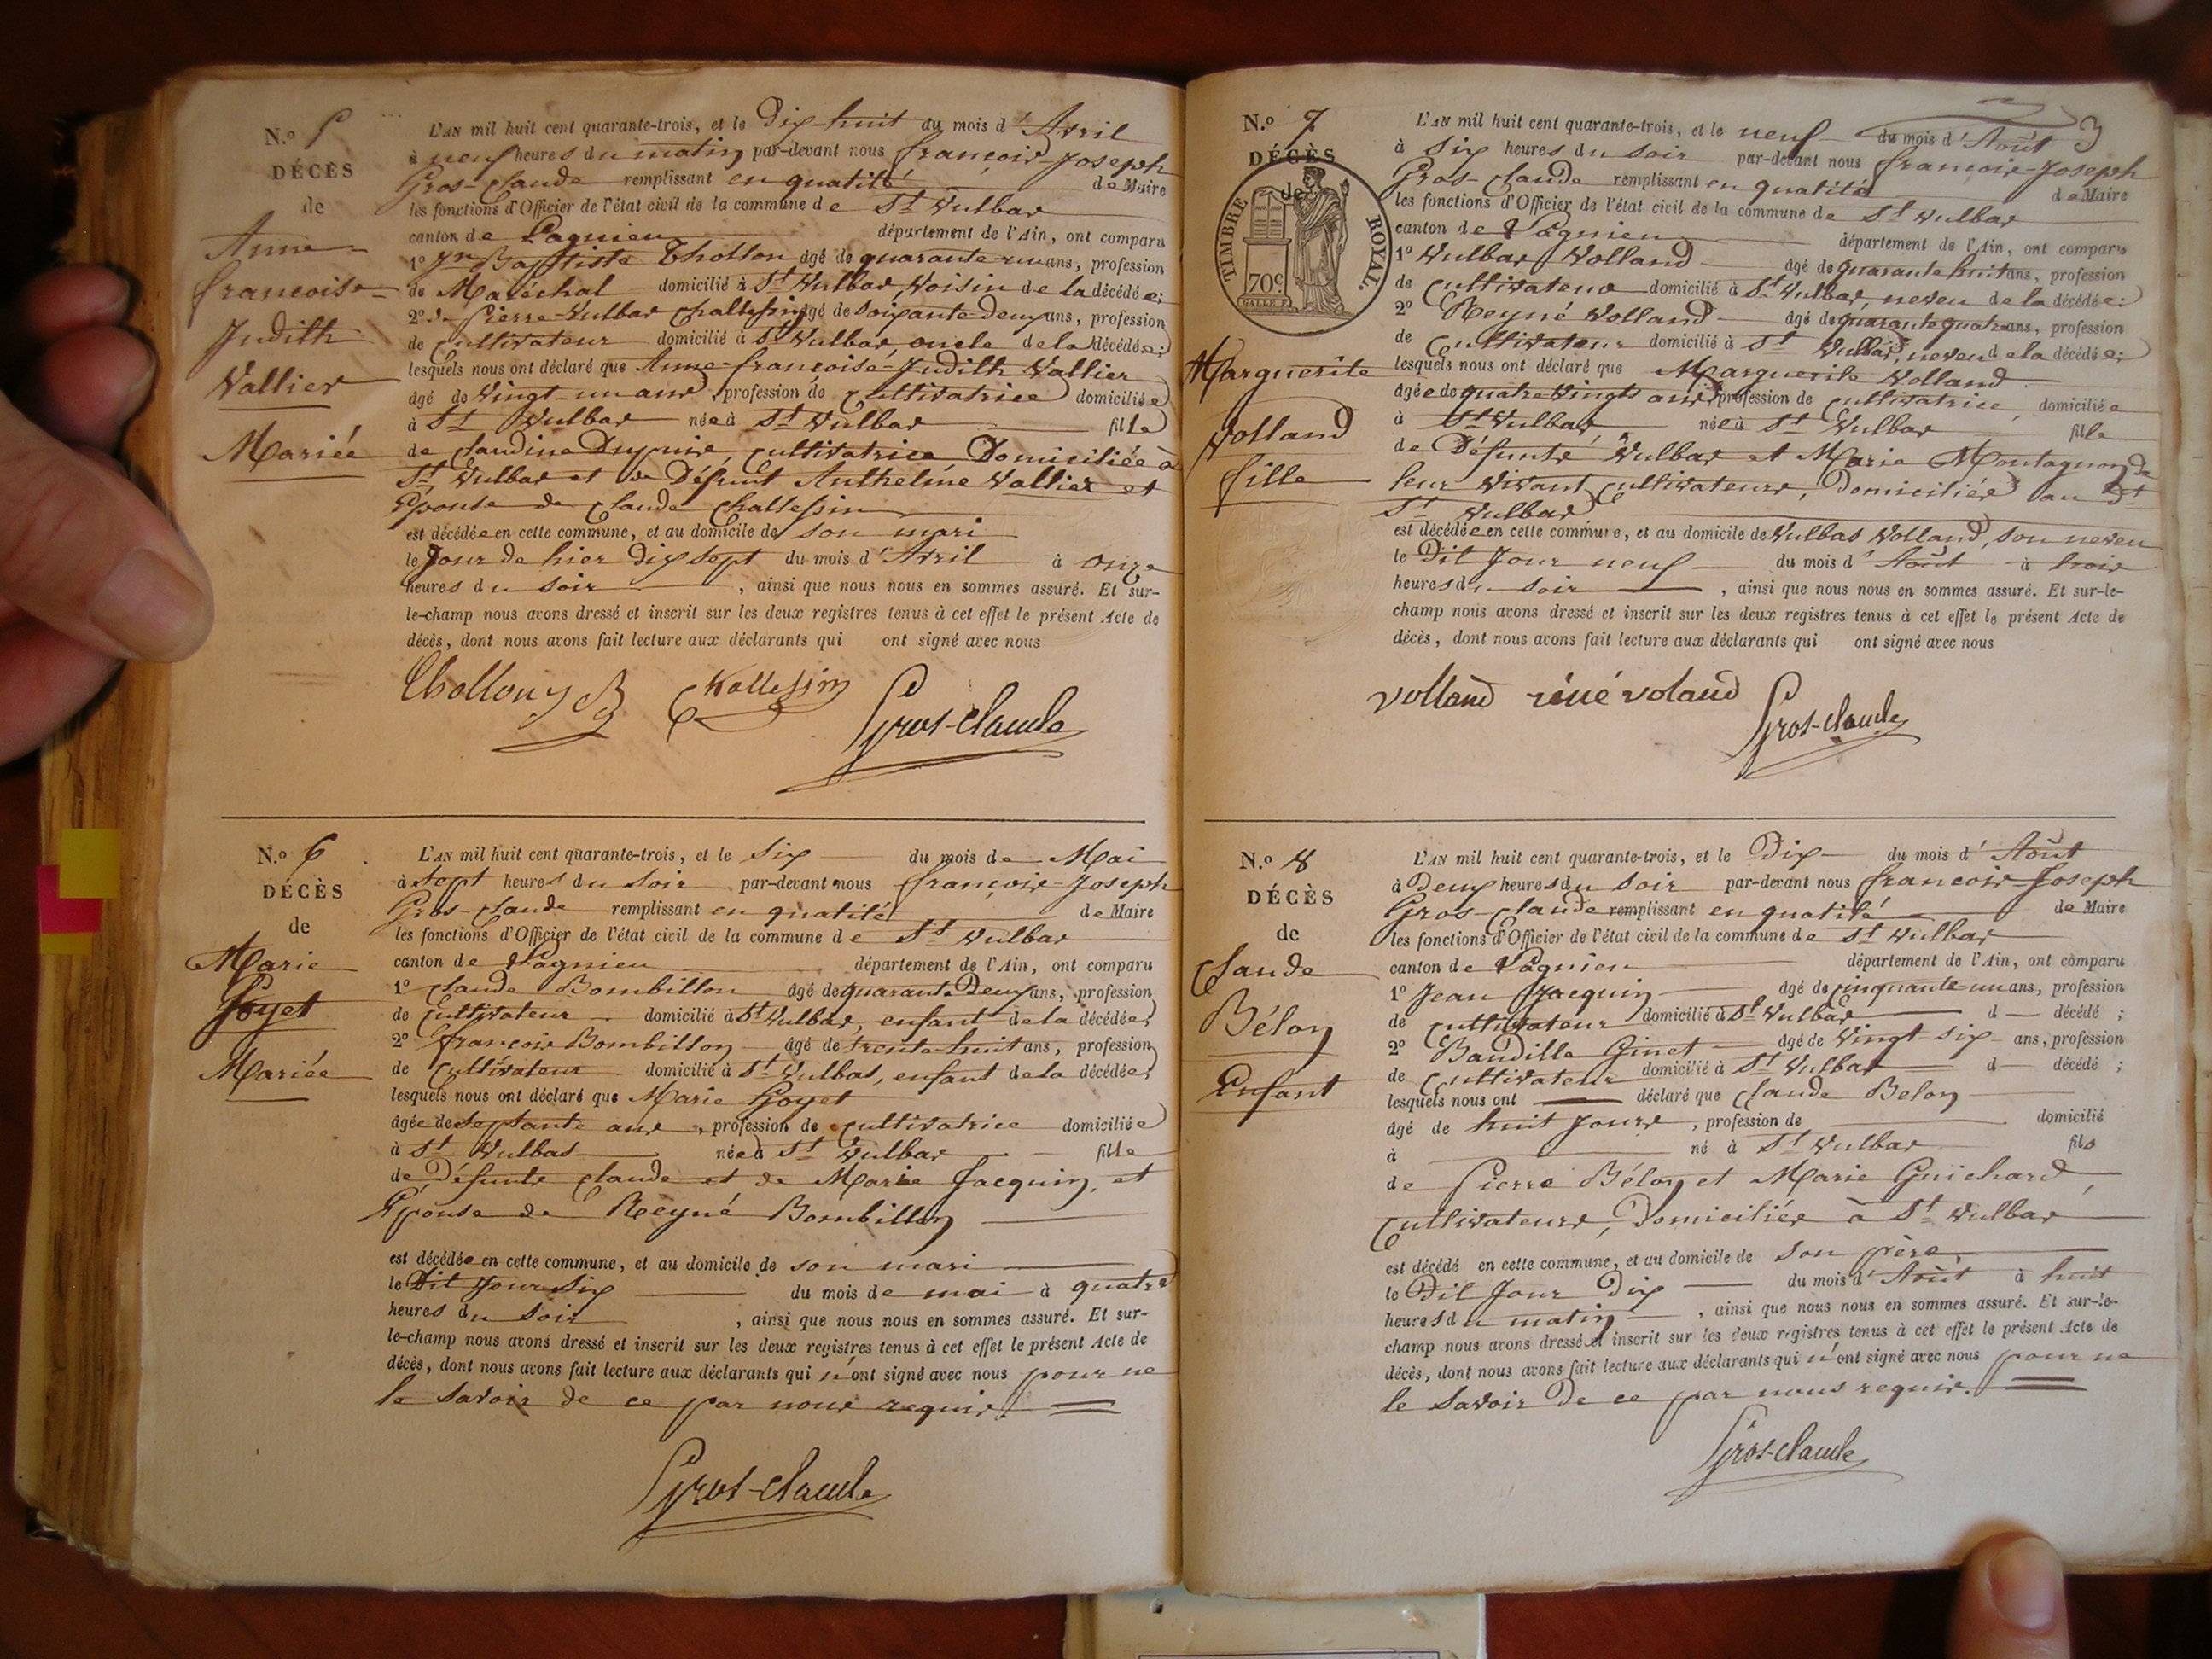 N.o 5
DÉCÈS
de
Anne
francoise
Judith
Vallier
Mariée
L'AN mil huit cent quarante-trois, et le Dix-huit du mois d'Avril
à neuf heures du matin par-devant nous françois Joseph
Gros-claude remplissant en qualité de Maire
les fonctions d'Officier de l'état civil de la commune de St Vulbas
canton de Lagnieu département de l'Ain, ont comparu
1o Baptiste Thollon âgé de quarante-un ans, profession
de Maréchal domicilié à St Vulbas, Voisin de la décédée;
2o Pierre-Vulbas Challessin âgé de soixante Deux ans, profession
de Cultivateur domicilié à St Vulbas, oncle de la décédée;
lesquels nous ont déclaré que Anne-francoise-Judith Vallier
âgé de Vingt-un ans, profession de Cultivatrice domiciliée
à St Vulbas née à St Vulbas fille
de Claudine Dupuis, Cultivatrice Domiciliée à
St Vulbas et de Défunt Anthelme Vallier et
Épouse de Claude Challessin
est décédée en cette commune, et au domicile de son mari
le Jour de hier Dix sept du mois d'Avril à onze
heures du soir, ainsi que nous nous en sommes assuré. Et sur-
le-champ nous avons dressé et inscrit sur les deux registres tenus à cet effet le présent Acte de
décès, dont nous avons fait lecture aux déclarants qui ont signé avec nous
Thollon B Kallessin Gros-claude
N.o 6
DÉCÈS
de
Marie
Goyet
Mariée
L'AN mil huit cent quarante-trois, et le Six du mois de Mai
à sept heures du soir par-devant nous françois-Joseph
Gros-claude remplissant en qualité de Maire
les fonctions d'Officier de l'état civil de la commune de St Vulbas
canton de Lagnieu département de l'Ain, ont comparu
1o Claude Bombillon âgé de quarante Deux ans, profession
de Cultivateur domicilié à St Vulbas, enfant de la décédée;
2o françois Bombillon âgé de trente-huit ans, profession
de Cultivateur domicilié à St Vulbas, enfant de la décédée;
lesquels nous ont déclaré que Marie Goyet
âgée de septante ans, profession de Cultivatrice domiciliée
à St Vulbas née à St Vulbas fille
de Défunts Claude et de Marie Jacquin, et
Épouse de Reyné Bombillon
est décédée en cette commune, et au domicile de son mari
le Dit Jour Six du mois de mai à quatre
heures du soir, ainsi que nous nous en sommes assuré. Et sur-
le-champ nous avons dressé et inscrit sur les deux registres tenus à cet effet le présent Acte de
décès, dont nous avons fait lecture aux déclarants qui n'ont signé avec nous pour ne
le savoir de ce par nous requis.
Gros-claude
3
N.o 7
DÉCÈS
de
TIMBRE ROYAL.
70c
Marguerite
Volland
fille
L'AN mil huit cent quarante-trois, et le neuf du mois d'Août
à Six heures du soir par-devant nous françois-Joseph
Gros-claude remplissant en qualité de Maire
les fonctions d'Officier de l'état civil de la commune de St Vulbas
canton de Lagnieu département de l'Ain, ont comparu
1o Vulbas Volland âgé de quarante huit ans, profession
de Cultivateur domicilié à St Vulbas, neveu de la décédée;
2o Reyné Volland âgé de quarante quatre ans, profession
de Cultivateur domicilié à St Vulbas, neveu de la décédée;
lesquels nous ont déclaré que Marguerite Volland
âgée de quatre Vingts ans, profession de Cultivatrice, domiciliée
à St Vulbas, née à St Vulbas fille
de Défunts Vulbas et Marie Montagnon de
leur Vivant Cultivateurs, Domiciliés au dt
St Vulbas
est décédée en cette commune, et au domicile de Vulbas Volland, son neveu
le Dit Jour neuf du mois d'Août à trois
heures du soir, ainsi que nous nous en sommes assuré. Et sur-le-
champ nous avons dressé et inscrit sur les deux registres tenus à cet effet le présent Acte de
décès, dont nous avons fait lecture aux déclarants qui ont signé avec nous
volland réné voland Gros-claude
N.o 8
DÉCÈS
de
Claude
Bélon
Enfant
L'AN mil huit cent quarante-trois, et le Dix du mois d'Août
à Deux heures du soir par-devant nous francois-Joseph
Gros-claude remplissant en qualité de Maire
les fonctions d'Officier de l'état civil de la commune de St Vulbas
canton de Lagnieu département de l'Ain, ont comparu
1o Jean Jacquin âgé de cinquante un ans, profession
de Cultivateur domicilié à St Vulbas d décédé;
2o Baudille Ginet âgé de Vingt-six ans, profession
de Cultivateur domicilié à St Vulbas d décédé;
lesquels nous ont déclaré que Claude Belon
âgé de huit Jours, profession de domicilié
à né à St Vulbas fils
de Pierre Bélon et Marie Guichard,
Cultivateurs, Domiciliés à St Vulbas
est décédé en cette commune, et au domicile de son père,
le Dit Jour Dix du mois d'Août à huit
heures du matin, ainsi que nous nous en sommes assuré. Et sur-le-
champ nous avons dressé et inscrit sur les deux registres tenus à cet effet le présent Acte de
décès, dont nous avons fait lecture aux déclarants qui n'ont signé avec nous pour ne
le savoir De ce par nous requis.
Gros-claude